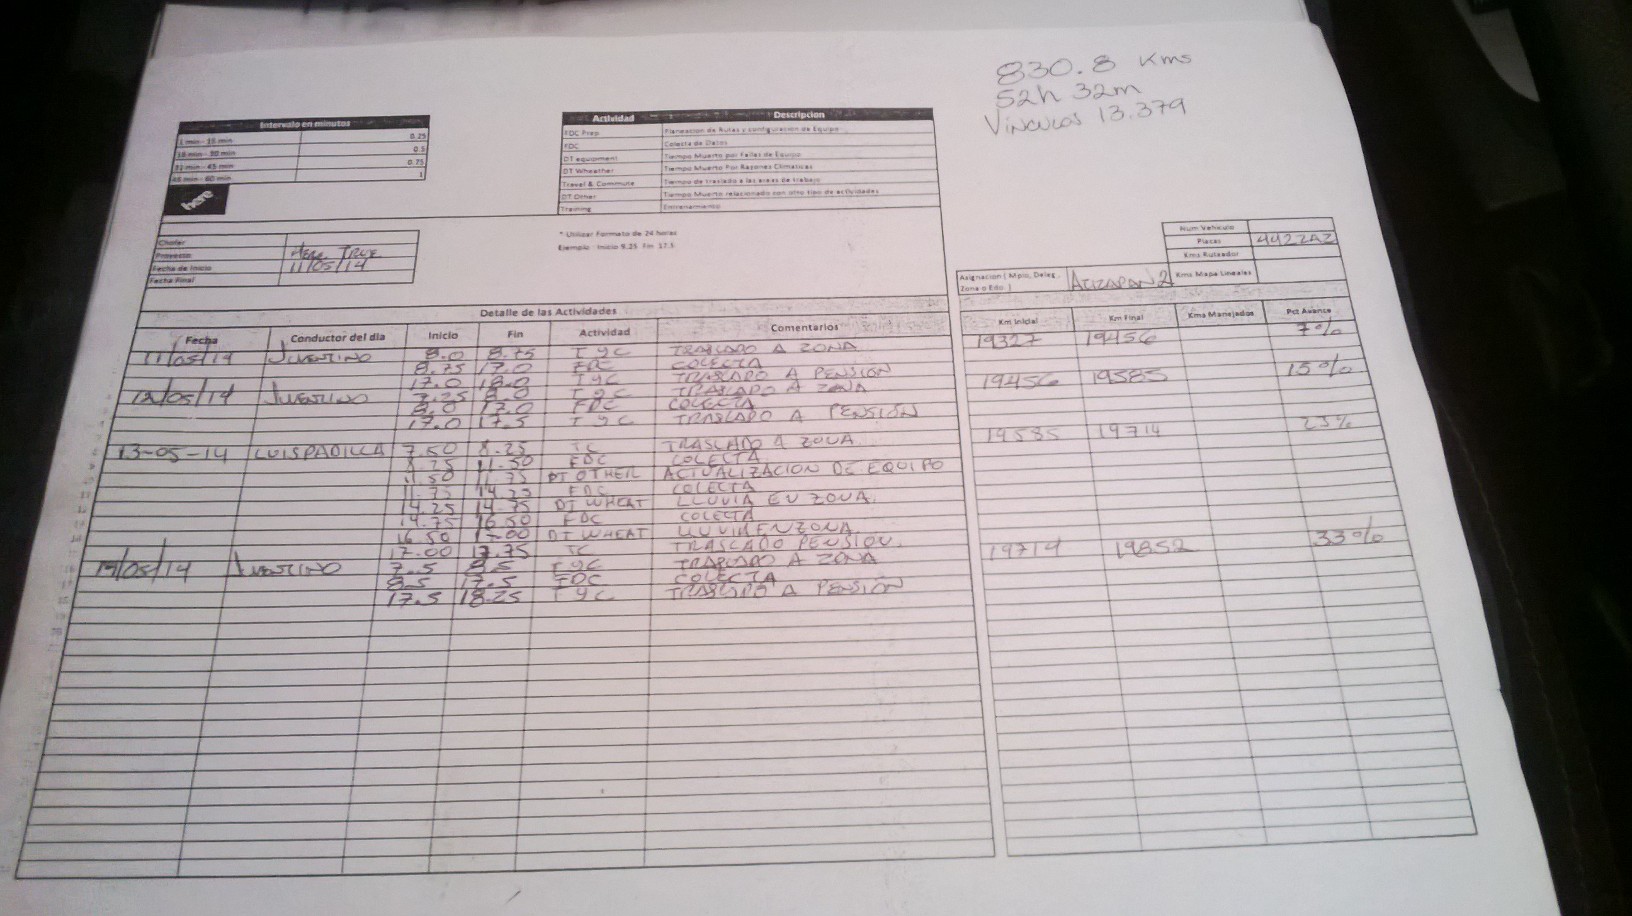 830.8 Kms
52h 32m
Vinculos 13.379
Intervalo en minutos
1 min - 15 min 0.25
16 min - 30 min 0.5
31 min - 45 min 0.75
46 min - 60 min 1
here
Actividad Descripcion
FDC Prep Planeacion de Rutas y configuracion de Equipo
FDC Colecta de Datos
DT equipment Tiempo Muerto por Fallas de Equipo
DT Wheather Tiempo Muerto Por Razones Climaticas
Travel & Commute Tiempo de traslado a las areas de trabajo
DT Other Tiempo Muerto relacionado con otro tipo de actividades
Training Entrenamiento
* Utilizar Formato de 24 horas
Ejemplo Inicio 9.25 Fin 17.5
Chofer
Proyecto HERE TRUE
Fecha de Inicio 11/05/14
Fecha Final
Num Vehiculo
Placas 442ZAZ
Kms Ruteador
Asignacion ( Mpio, Deleg, Zona o Edo ) ATIZAPAN 2 Kms Mapa Lineales
Detalle de las Actividades
Fecha Conductor del dia Inicio Fin Actividad Comentarios Km Inicial Km Final Kms Manejados Pct Avance
11/05/14 JUVENTINO 8.0 8.75 T y C TRASLADO A ZONA 19327 19456 7%
8.75 17.0 FDC COLECTA
17.0 18.0 T y C TRASLADO A PENSION
12/05/14 JUVENTINO 7.25 8.0 T y C TRASLADO A ZONA 19456 19585 15%
8.0 17.0 FDC COLECTA
17.0 17.5 T y C TRASLADO A PENSIÓN
13-05-14 LUIS PADILLA 7.50 8.25 TC TRASLADO A ZONA 19585 19714 23%
8.25 11.50 FDC COLECTA
11.50 11.75 DT OTHER ACTUALIZACION DE EQUIPO
11.75 14.25 FDC COLECTA
14.25 14.75 DT WHEAT LLUVIA EN ZONA.
14.75 16.50 FDC COLECTA
16.50 17.00 DT WHEAT LLUVIA EN ZONA
17.00 17.75 TC TRASLADO PENSION.
14/05/14 JUVENTINO 7.5 8.5 T y C TRASLADO A ZONA 19714 19852 33%
8.5 17.5 FDC COLECTA
17.5 18.25 T y C TRASLADO A PENSIÓN